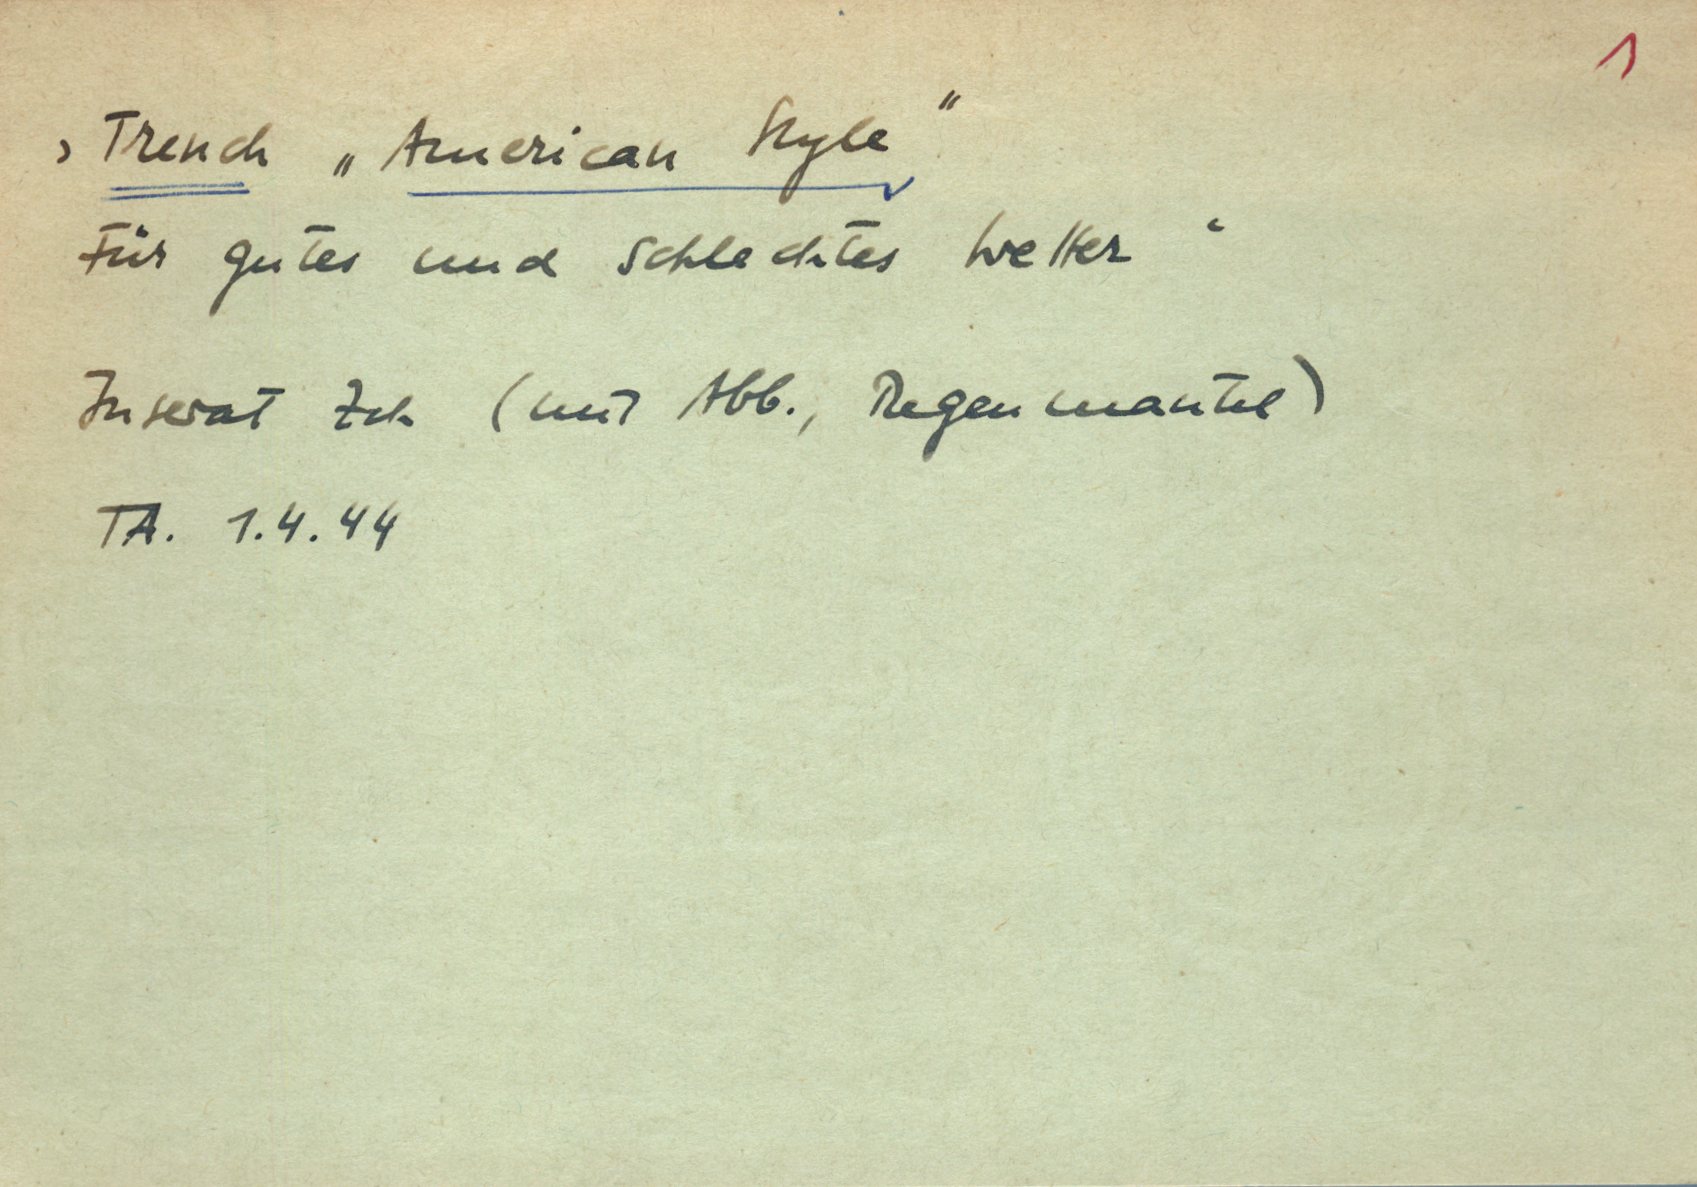 1
‚Trench „American Style"
Für gutes und schlechtes Wetter‘
Inserat Zch (mit Abb., Regenmantel)
TA. 1.4.44